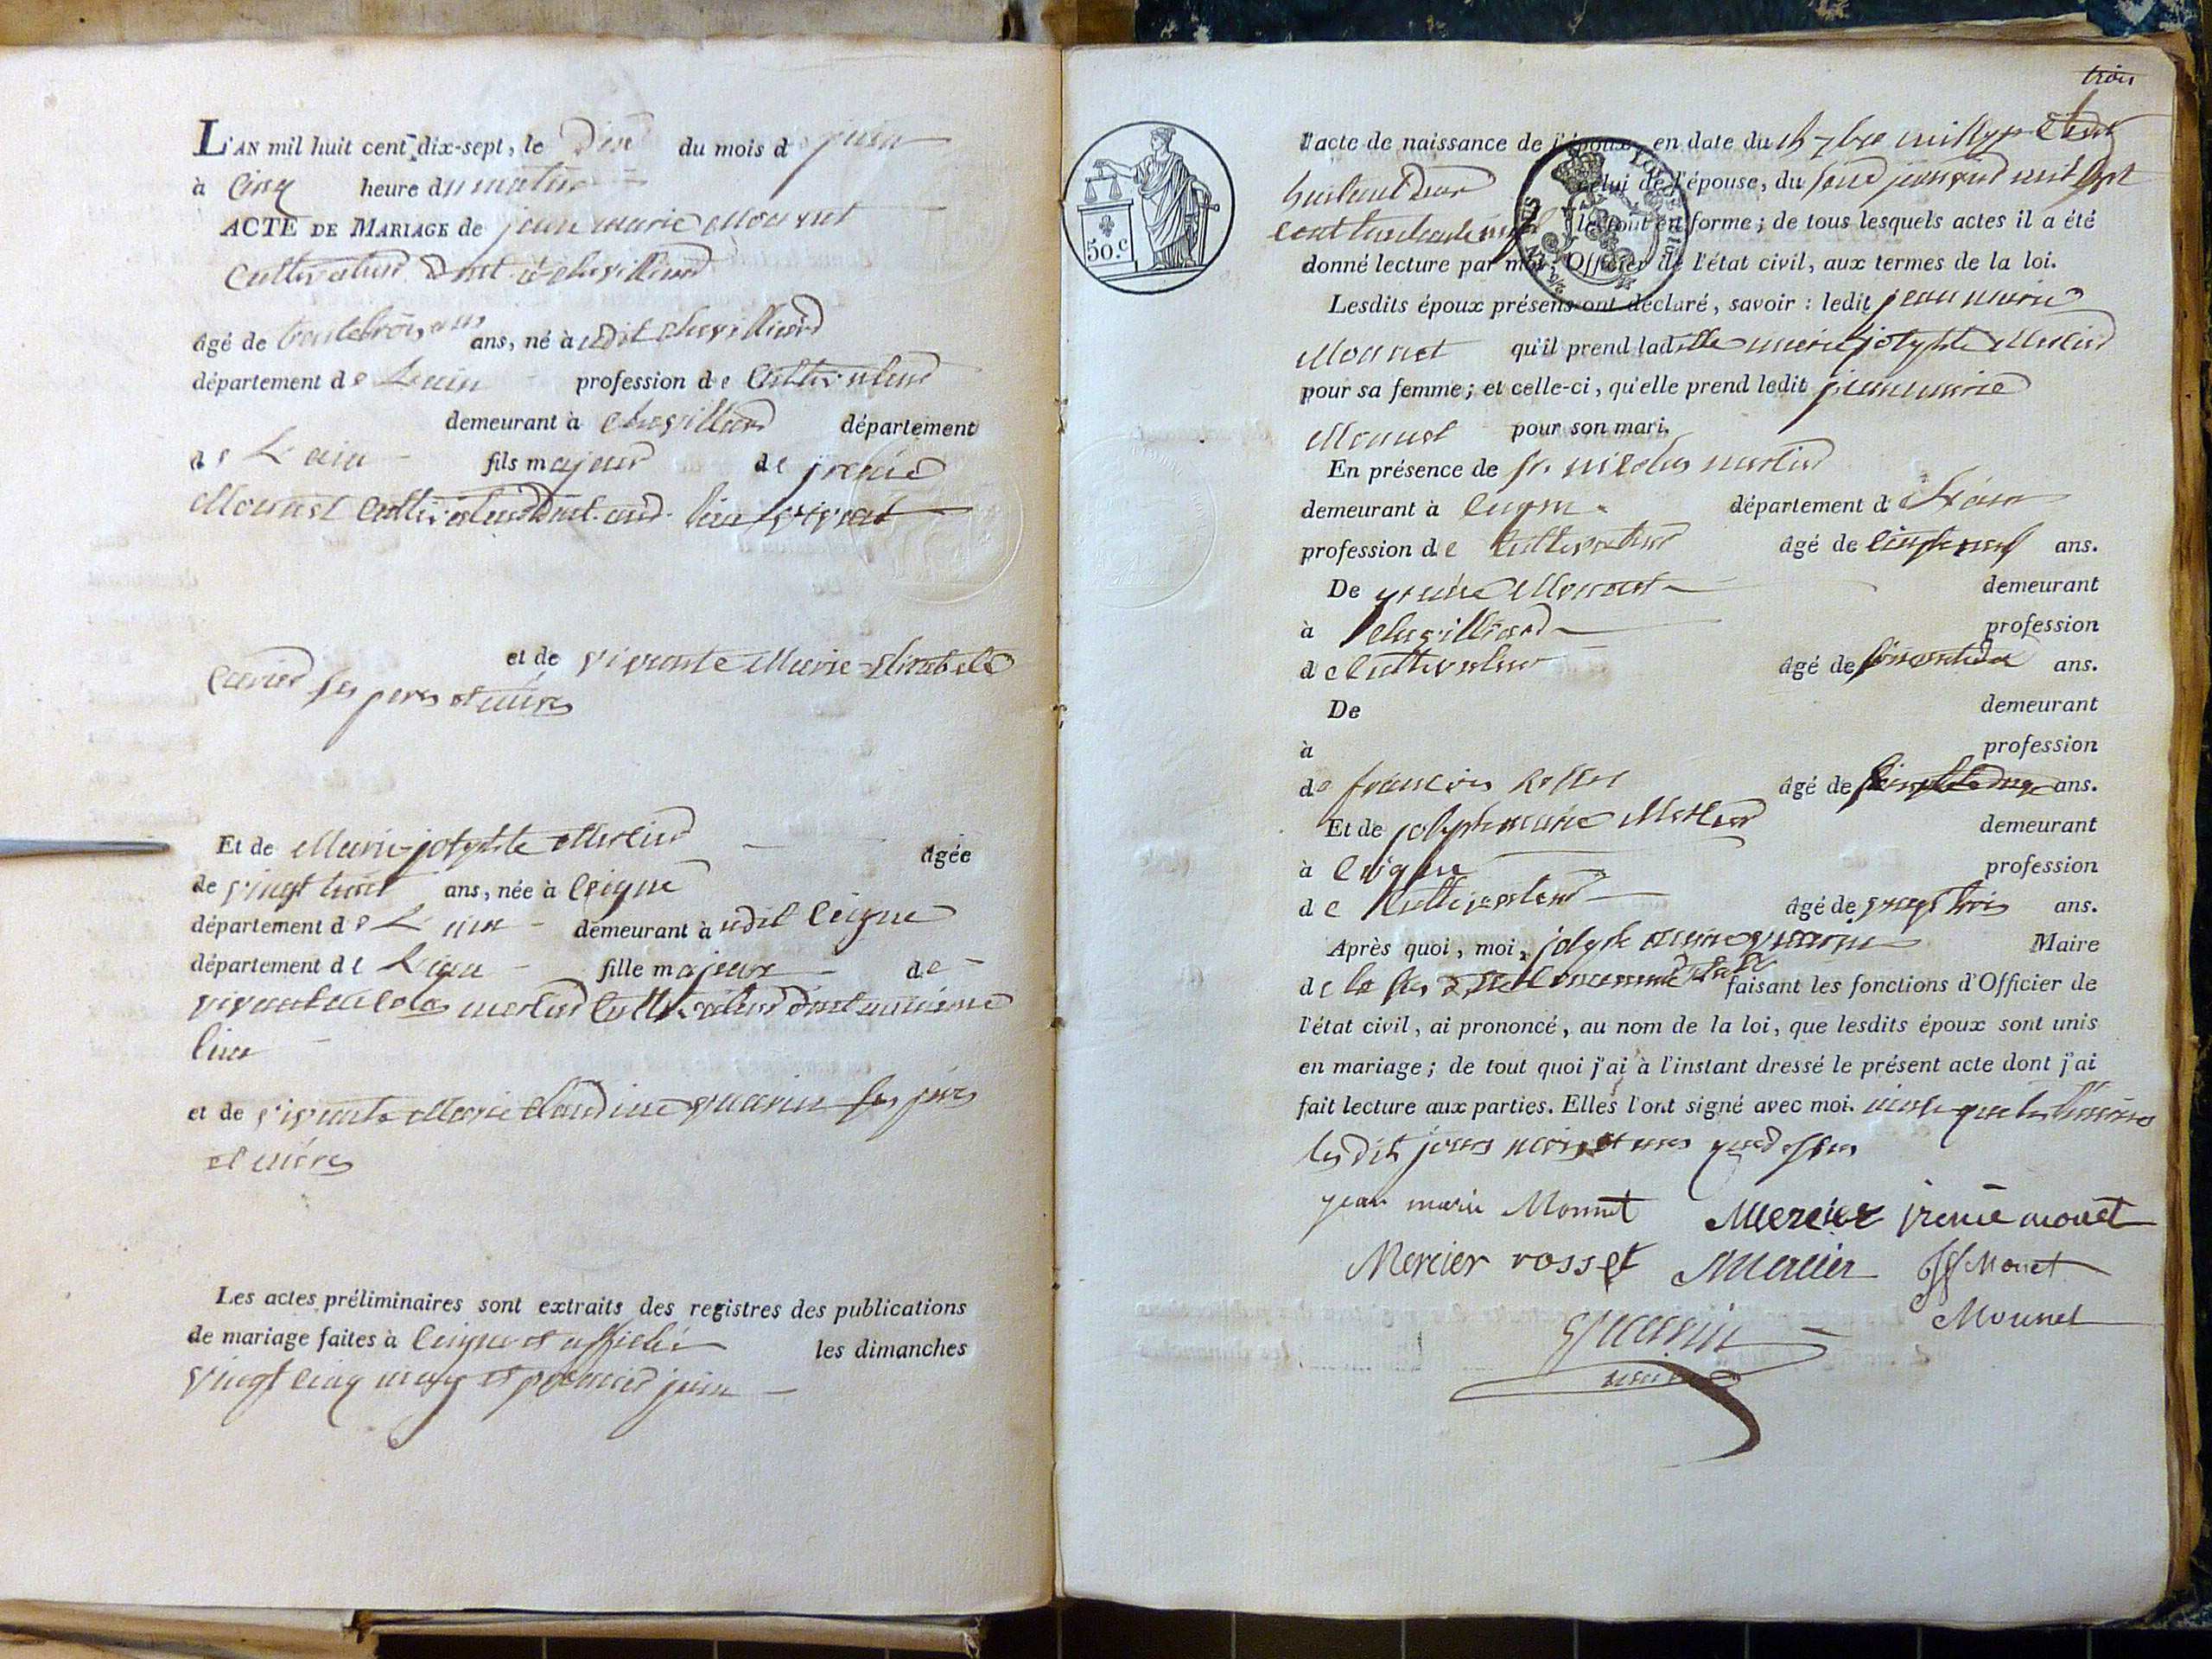 L'AN mil huit cent dix-sept, le Dix du mois d juin
à Cinq heure du matin
ACTE DE MARIAGE de jean marie Monnet
Cultivateur Dmt à chevilliard
âgé de trente trois ans ans, né à udit chevilliard
département de L'ain profession de Cultivateur
demeurant à chevilliard département
de L'ain fils majeur de jrenée
Monnet Cultivateur Dmt. aud. lieu vivant
et de vivante Marie Elisabele
Carrier ses peres et mères
Et de Marie josephte Mercier âgée
de vingt huit ans, née à leigne
département de L'ain demeurant à udit leigne
département de L'ain fille majeure de
vivant nicolas mercier Cultivateur dmt au même
lieu
et de vivante Marie Claudine guarin ses pères
et mères
Les actes préliminaires sont extraits des registres des publications
de mariage faites à leigne et affichée les dimanches
vingt cinq may et premier juin
trois
l'acte de naissance de l'époux, en date du 7bre mil sept Cent
huitante celui de l'épouse, du janvier mil sept
cent le tout en forme; de tous lesquels actes il a été
donné lecture par moi, Officier de l'état civil, aux termes de la loi.
50.c
Lesdits époux présens ont déclaré, savoir : ledit jean marie
Monnet qu'il prend ladite marie josephte Mercier
pour sa femme; et celle-ci, qu'elle prend ledit jean marie
Monnet pour son mari.
En présence de sr. nicolas mercier
demeurant à leigne département d L'ain
profession de Cultivateur âgé de ans.
De jrenée Monnet demeurant
à chevilliard profession
de Cultivateur âgé de ans.
De demeurant
à profession
de francois Rosset âgé de ans.
Et de joseph marie Mercier demeurant
à leigne profession
de Cultivateur âgé de vingt trois ans.
Après quoi, moi, joseph marie guarin Maire
de faisant les fonctions d'Officier de
l'état civil, ai prononcé, au nom de la loi, que lesdits époux sont unis
en mariage; de tout quoi j'ai à l'instant dressé le présent acte dont j'ai
fait lecture aux parties. Elles l'ont signé avec moi. ainsi que les témoins
les dit jours mois et ans que dessus
jean marie Monnet Mercier jrenée monet
Mercier rosset Mercier Monet
Monnet
guarin
maire